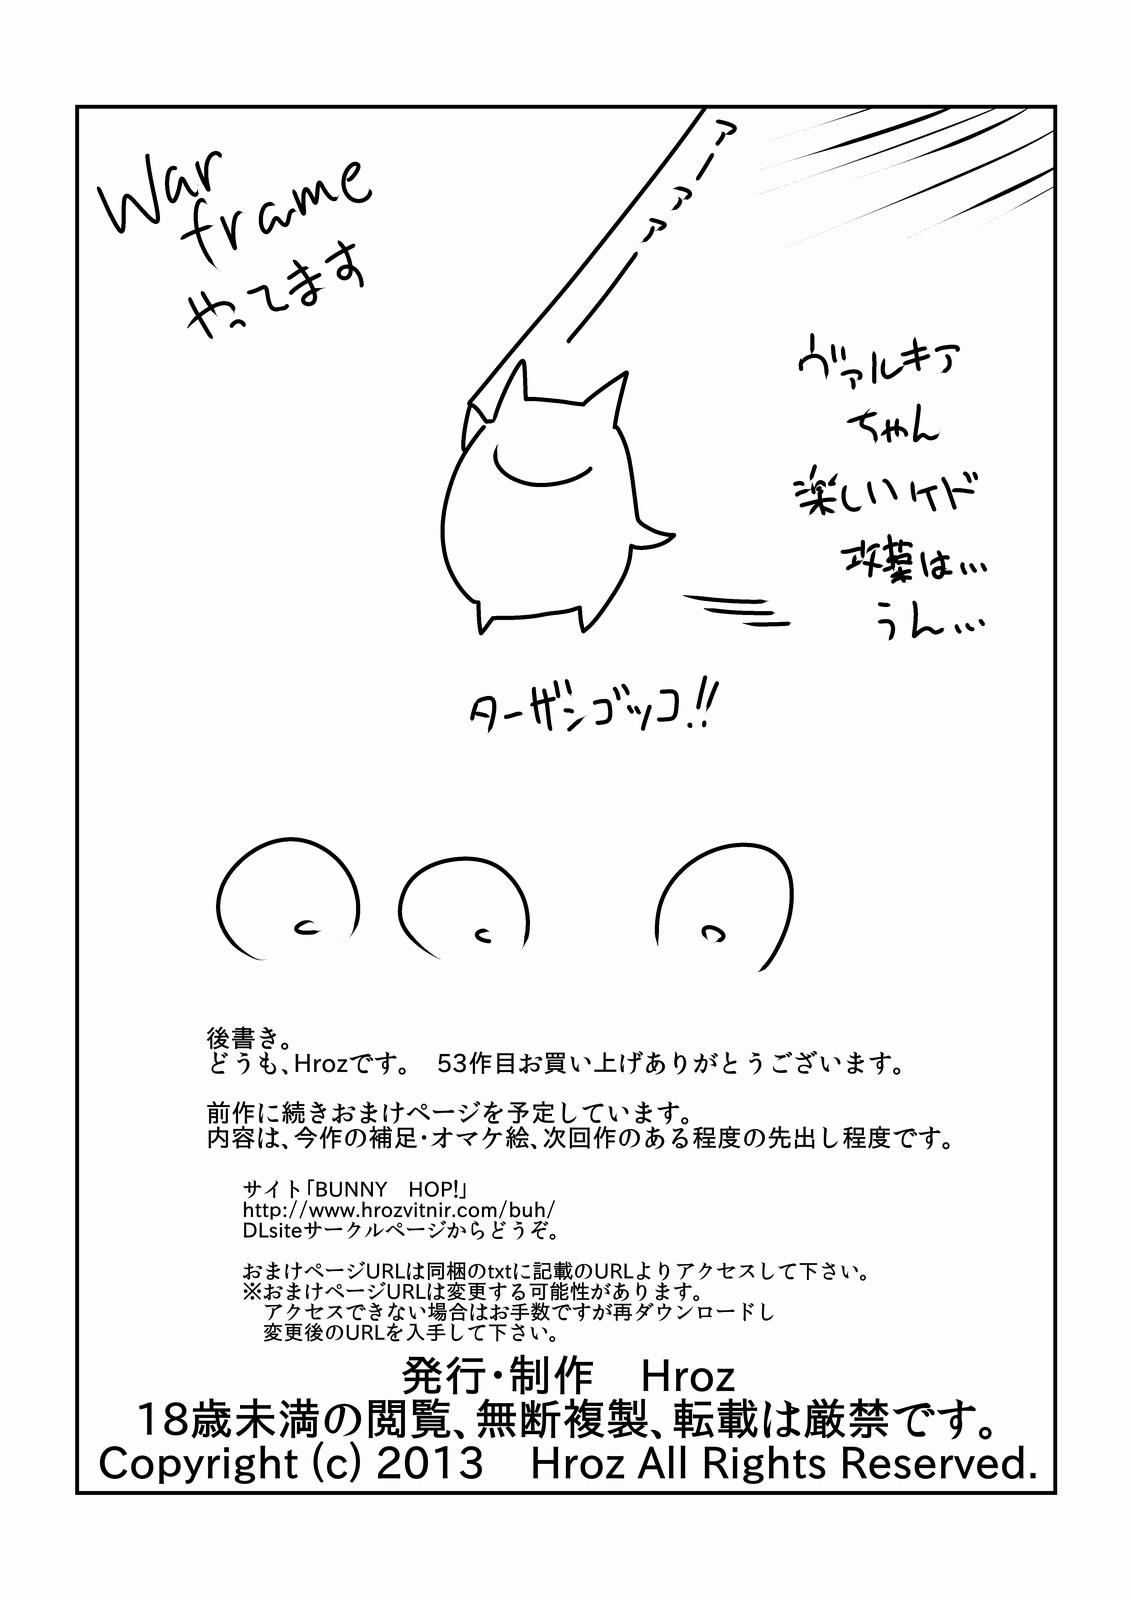 War
frame
やってます
アーァァー
ヴァルキア
ちゃん
楽しいケド
攻薬は…
うん…
ターザンゴッコ!!
後書き。
どうも、Hrozです。　53作目お買い上げありがとうございます。
前作に続きおまけページを予定しています。
内容は、今作の補足･オマケ絵、次回作のある程度の先出し程度です。
サイト「BUNNY　HOP!」
http://www.hrozvitnir.com/buh/
DLsiteサークルページからどうぞ。
おまけページURLは同梱のtxtに記載のURLよりアクセスして下さい。
※おまけページURLは変更する可能性があります。
アクセスできない場合はお手数ですが再ダウンロードし
変更後のURLを入手して下さい。
発行･制作　Hroz
18歳未満の閲覧、無断複製、転載は厳禁です。
Copyright (c) 2013　Hroz All Rights Reserved.